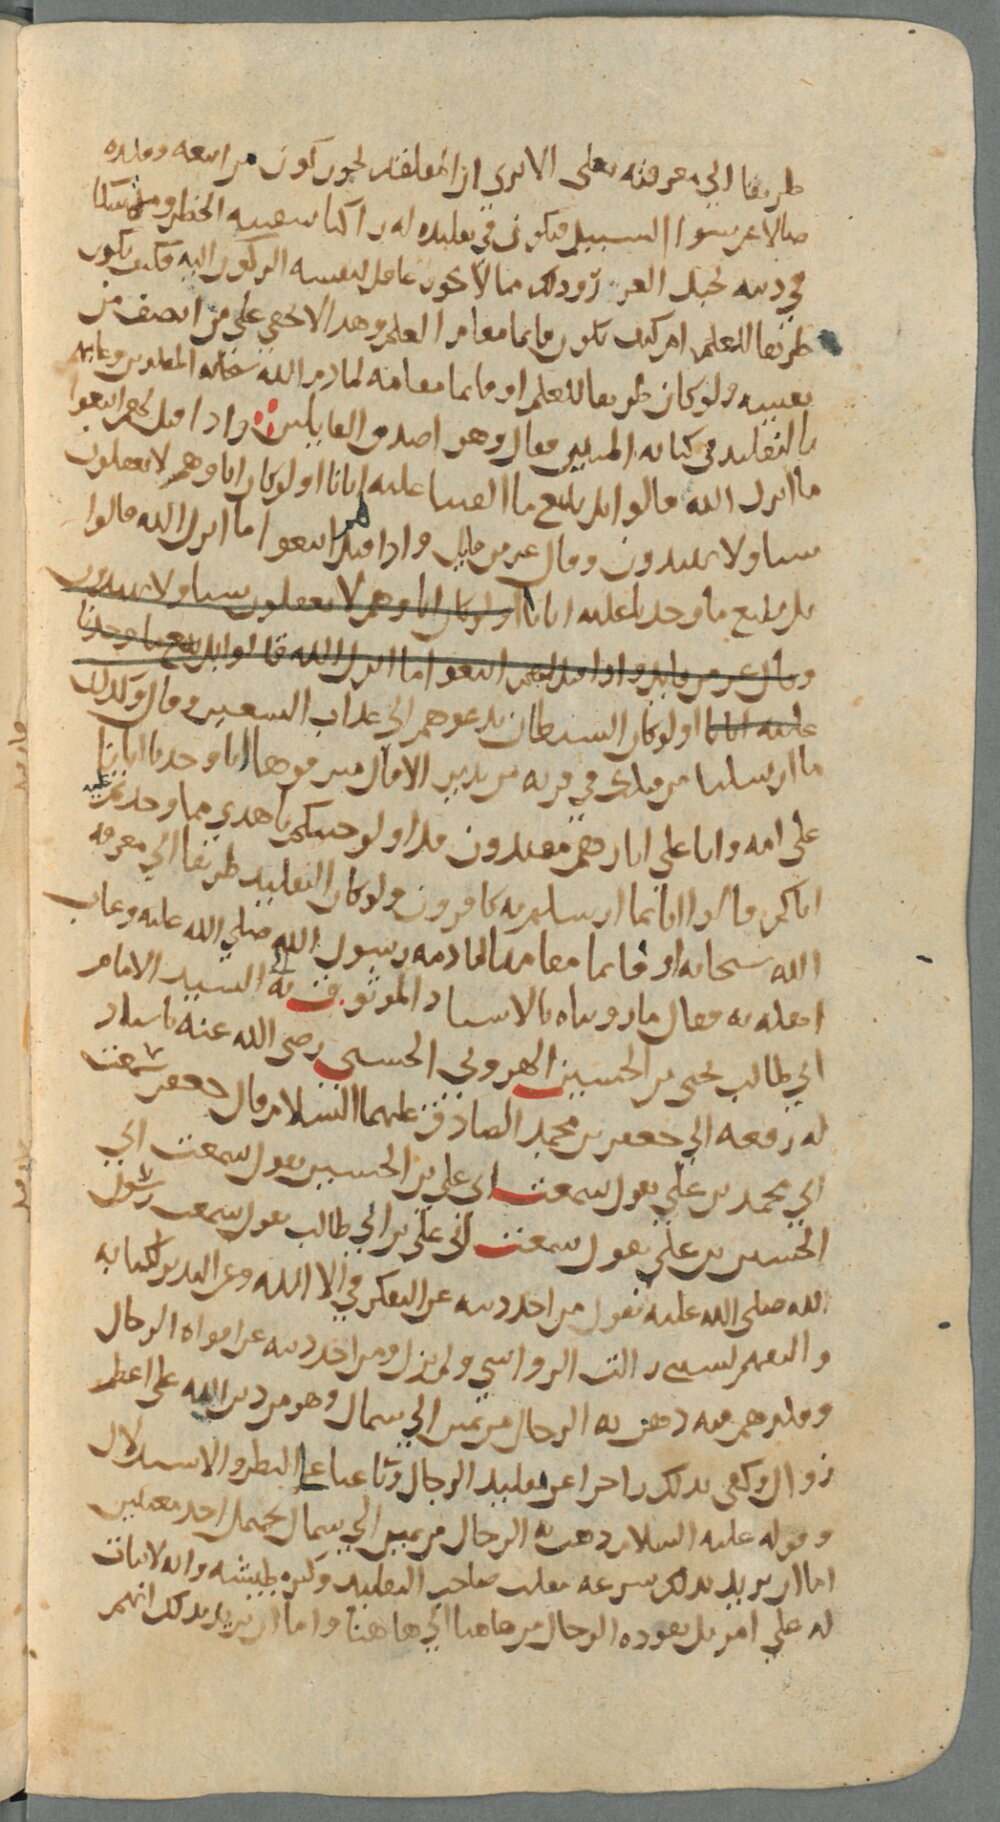 طريقا الى معرفته تعالى الا ترى ان المقلد يجوز كون من اتبعه وقلده
ضالا عن سواء السبيل فيكون في تقليده له راكبا بنفسه الخطر ومتمسكا
في دينه بحبل الغرر وذلك مما لا يجوز عاقل لنفسه الركون اليه فكيف يكون
طريقا للعلم ام كيف يكون قائما مقام العلم وهذا لا يخفى على من انصف من
نفسه ولو كان طريقا للعلم او قائما مقامه لما ذم الله سبحانه المقلدين وعابهم
بالتقليد في كتابه المبين فقال وهو اصدق القايلين واذا قيل لهم اتبعوا
ما انزل الله قالوا بل نتبع ما الفينا عليه ابانا اولو كان اباوهم لا يعقلون
شيا ولا يهتدون وقال عز من قايل واذا قيل لهم اتبعوا ما انزل الله قالوا
بل نتبع ما وجدنا عليه ابانا اولو كان اباوهم لا يعقلون شيا ولا يهتدون
وقال عز من قايل واذا قيل لهم اتبعوا ما انزل الله قالوا بل نتبع ما وجدنا
عليه ابانا اولو كان الشيطان يدعوهم الى عذاب السعير وقال وكذلك
ما ارسلنا من قبلك في قرية من نذير الا قال مترفوها انا وجدنا ابانا
على امة وانا على اثارهم مقتدون قل اولو جيتكم باهدى مما وجدتم عليه
اباكم قالوا انا بما ارسلتم به كافرون ولو كان التقليد طريقا الى معرفة
الله سبحانه او قائما مقامها لما ذمه رسول الله صلى الله عليه وعاب
اهله به فقال ما رويناه بالاسناد الموثوق به الى السيد الامام
ابي طالب يحيى بن الحسين الهروني الحسني رضي الله عنه باسناد
له رفعه الى جعفر بن محمد الصادق عليهما السلام قال جعفر سمعت
ابي محمد بن علي يقول سمعت ابي علي بن الحسين يقول سمعت ابي
الحسين بن علي يقول سمعت ابي علي بن ابي طالب يقول سمعت رسول
الله صلى الله عليه يقول من اخذ دينه عن التفكر في الا الله وعن التدبر لكتابه
والتفهم لسنتي زالت الرواسي ولم يزل ومن اخذ دينه عن افواه الرجال
وقلدهم فيه ذهبت به الرجال من يمين الى شمال وهو من دين الله على اعظم
زوال وكفى بذلك زاجرا عن تقليد الرجال وباعثا على النظر والاستدلال
وقوله عليه السلام ذهبت به الرجال من يمين الى شمال يحتمل احد معنيين
اما ان يريد بذلك سرعة تقلب صاحب التقليد وكثرة طيشه وانه لا ثبات
له على امر بل يقوده الرجال من هاهنا الى هاهنا واما ان يريد بذلك انهم